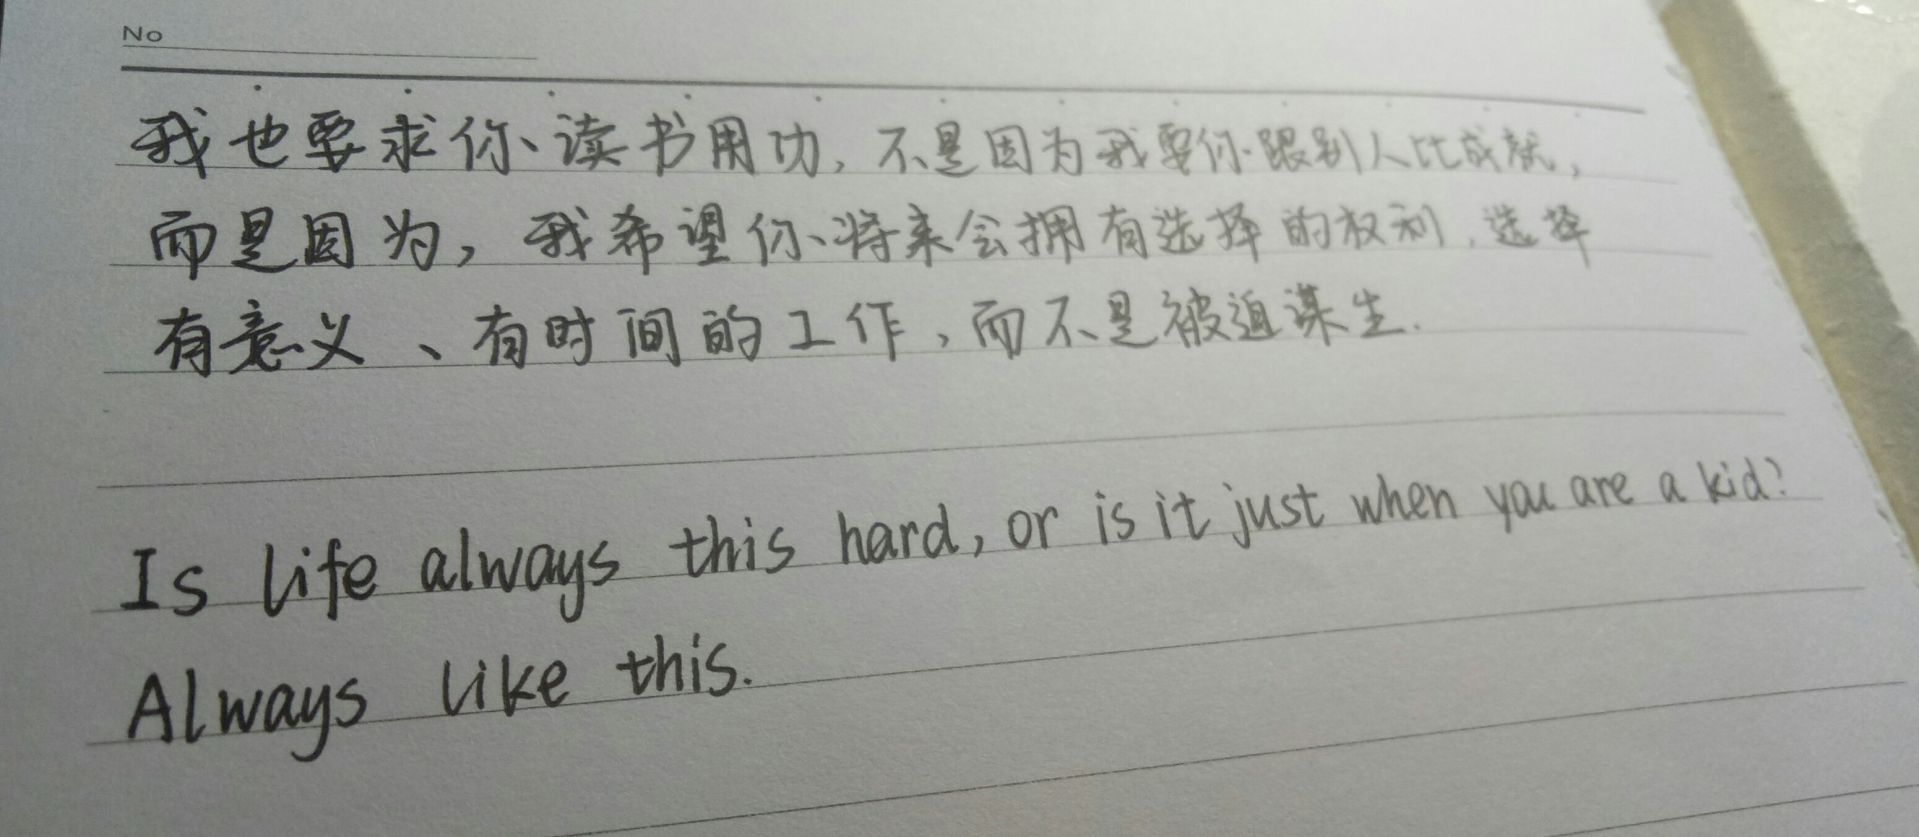 No
我也要求你读书用功,不是因为我要你跟别人比成就,
而是因为,我希望你将来会拥有选择的权利,选择
有意义、有时间的工作,而不是被迫谋生.
Is life always this hard, or is it just when you are a kid?
Always like this.